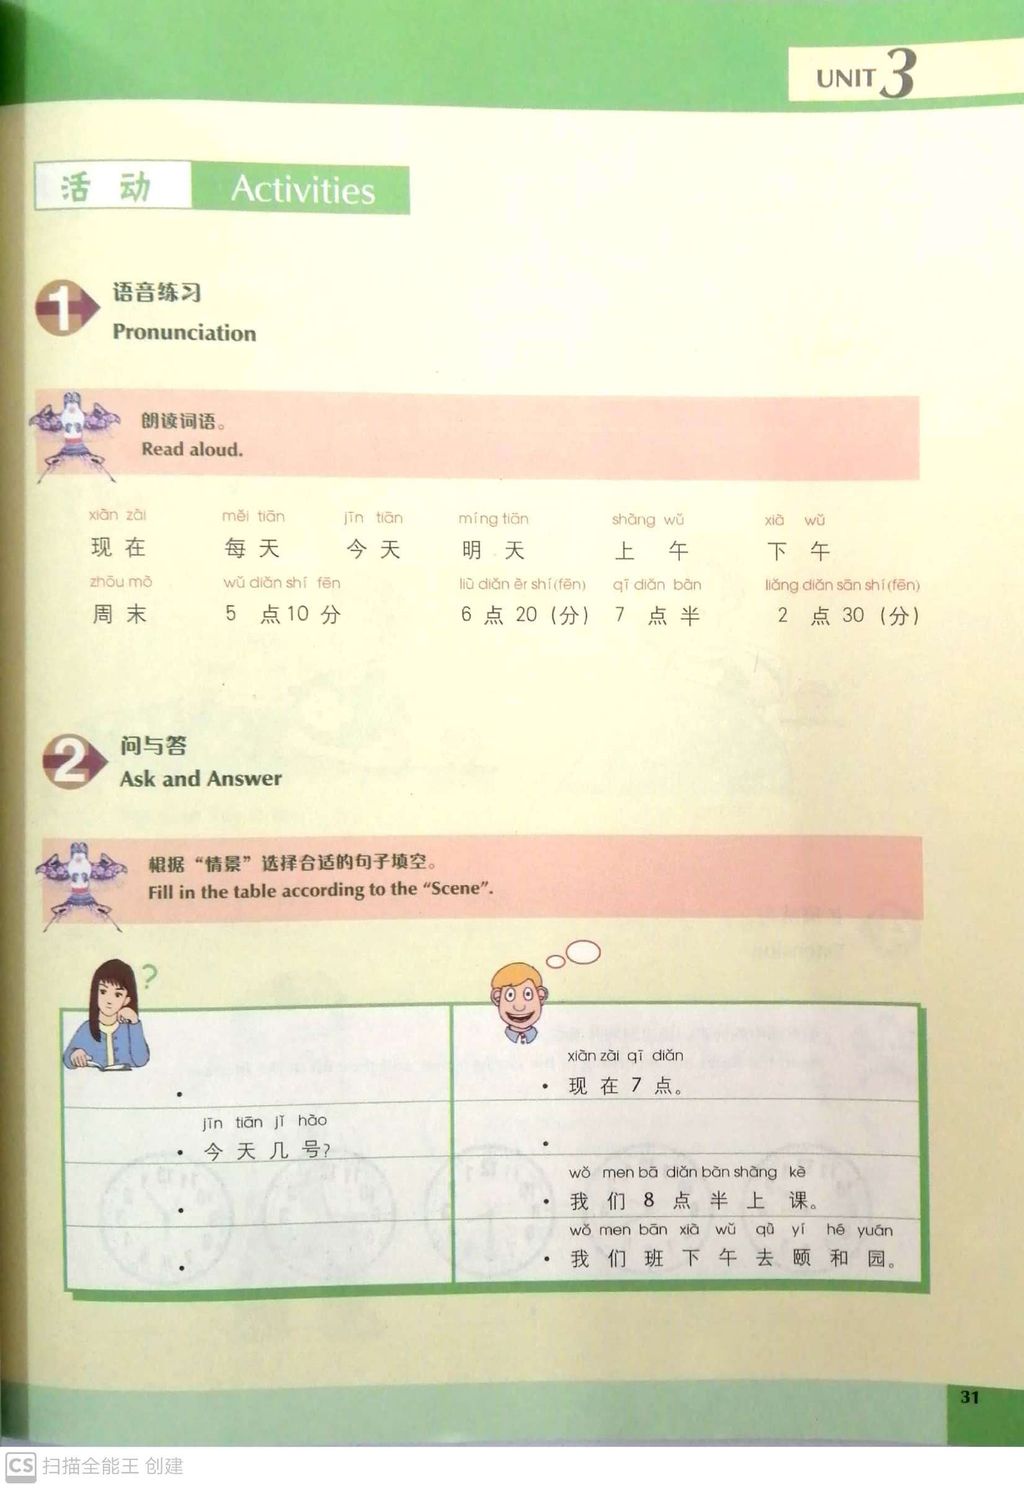 UNIT 3
活 动 Activities
1
语音练习
Pronunciation
朗读词语。
Read aloud.
xiàn zài měi tiān jīn tiān míng tiān shàng wǔ xià wǔ
现 在 每 天 今 天 明 天 上 午 下 午
zhōu mò wǔ diǎn shí fēn liù diǎn èr shí (fēn) qī diǎn bàn liǎng diǎn sān shí (fēn)
周 末 5 点 10 分 6 点 20 (分) 7 点 半 2 点 30 (分)
2
问与答
Ask and Answer
根据“情景”选择合适的句子填空。
Fill in the table according to the “Scene”.
?
xiàn zài qī diǎn
• • 现 在 7 点。
jīn tiān jǐ hào
• 今 天 几 号? •
wǒ men bā diǎn bàn shàng kè
• • 我 们 8 点 半 上 课。
wǒ men bān xià wǔ qù yí hé yuán
• • 我 们 班 下 午 去 颐 和 园。
31
CS 扫描全能王 创建